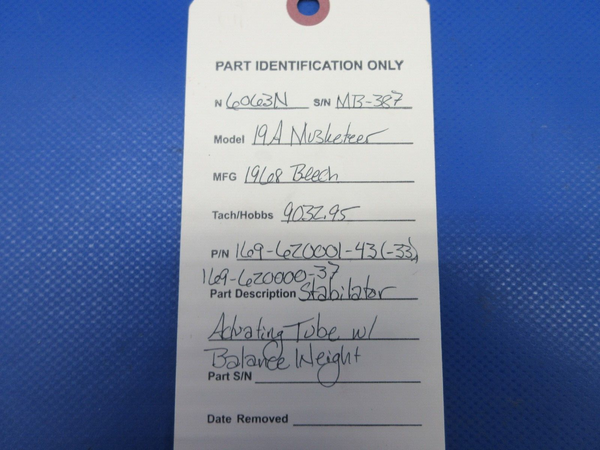 PART IDENTIFICATION ONLY
N 6063N S/N MB-387
Model 19A Musketeer
MFG 1968 Beech
Tach/Hobbs 9032.95
P/N 169-620001-43(-33),
169-620000-37
Part Description Stabilator
Actuating Tube w/
Balance Weight
Part S/N
Date Removed